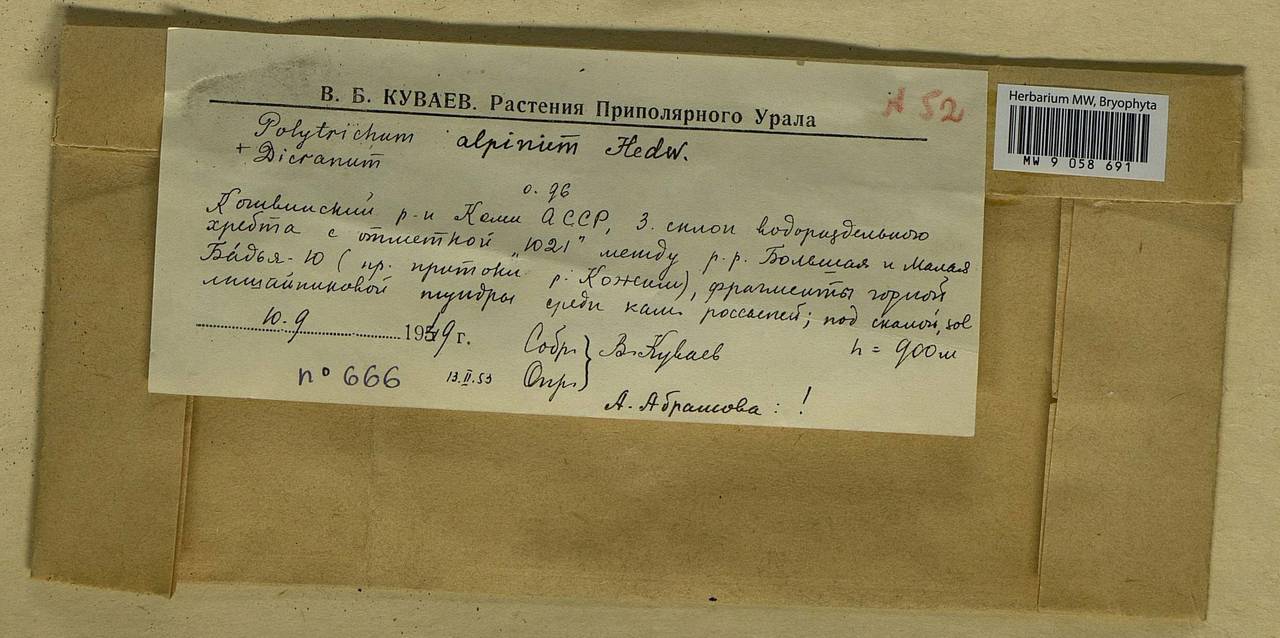 В. Б. КУВАЕВ. Растения Приполярного Урала
А 52
Herbarium MW, Bryophyta
MW 9 058 691
Polytrichum alpinum Hedw.
+ Dicranum
о. дв
р-н Коми АССР, З. склон водораздельного
хребта с отметкой "1021" между р.р. Большая и Малая
Бадья-Ю (пр. притоки р. Кожим), фрагменты горной
лишайниковой тундры среди кам. россыпей; под скалой, sol
10.9 1949 г. Собр. В. Куваев h = 900м
n° 666 13.II.53 Опр.
А. Абрамова : !